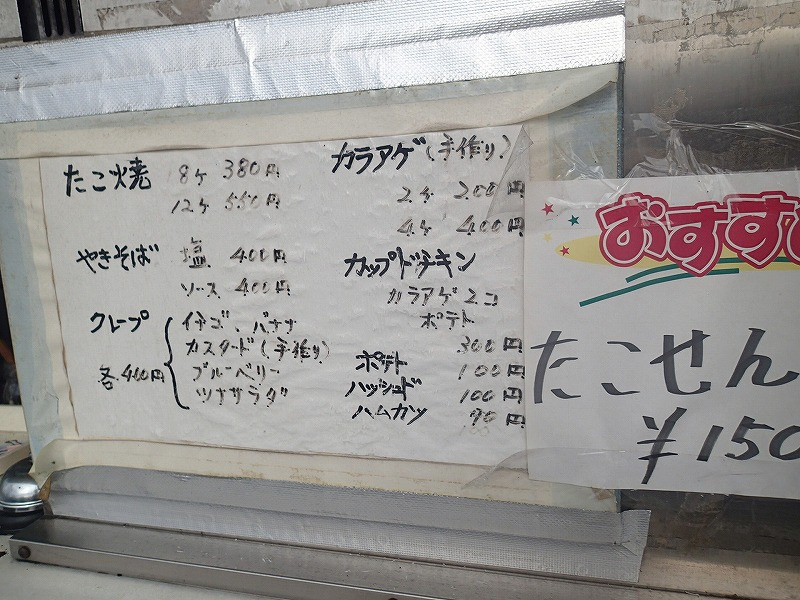 たこ焼 8ヶ 380円
12ヶ 550円
やきそば 塩 400円
ソース 400円
クレープ イチゴ、バナナ
カスタード(手作り)
各400円 ブルーベリー
ツナサラダ
カラアゲ(手作り)
2ヶ 200円
4ヶ 400円
カップドチキン
カラアゲ2コ
ポテト
300円
ポテト 100円
ハッシュド 100円
ハムカツ 90円
おすす
たこせん
¥150